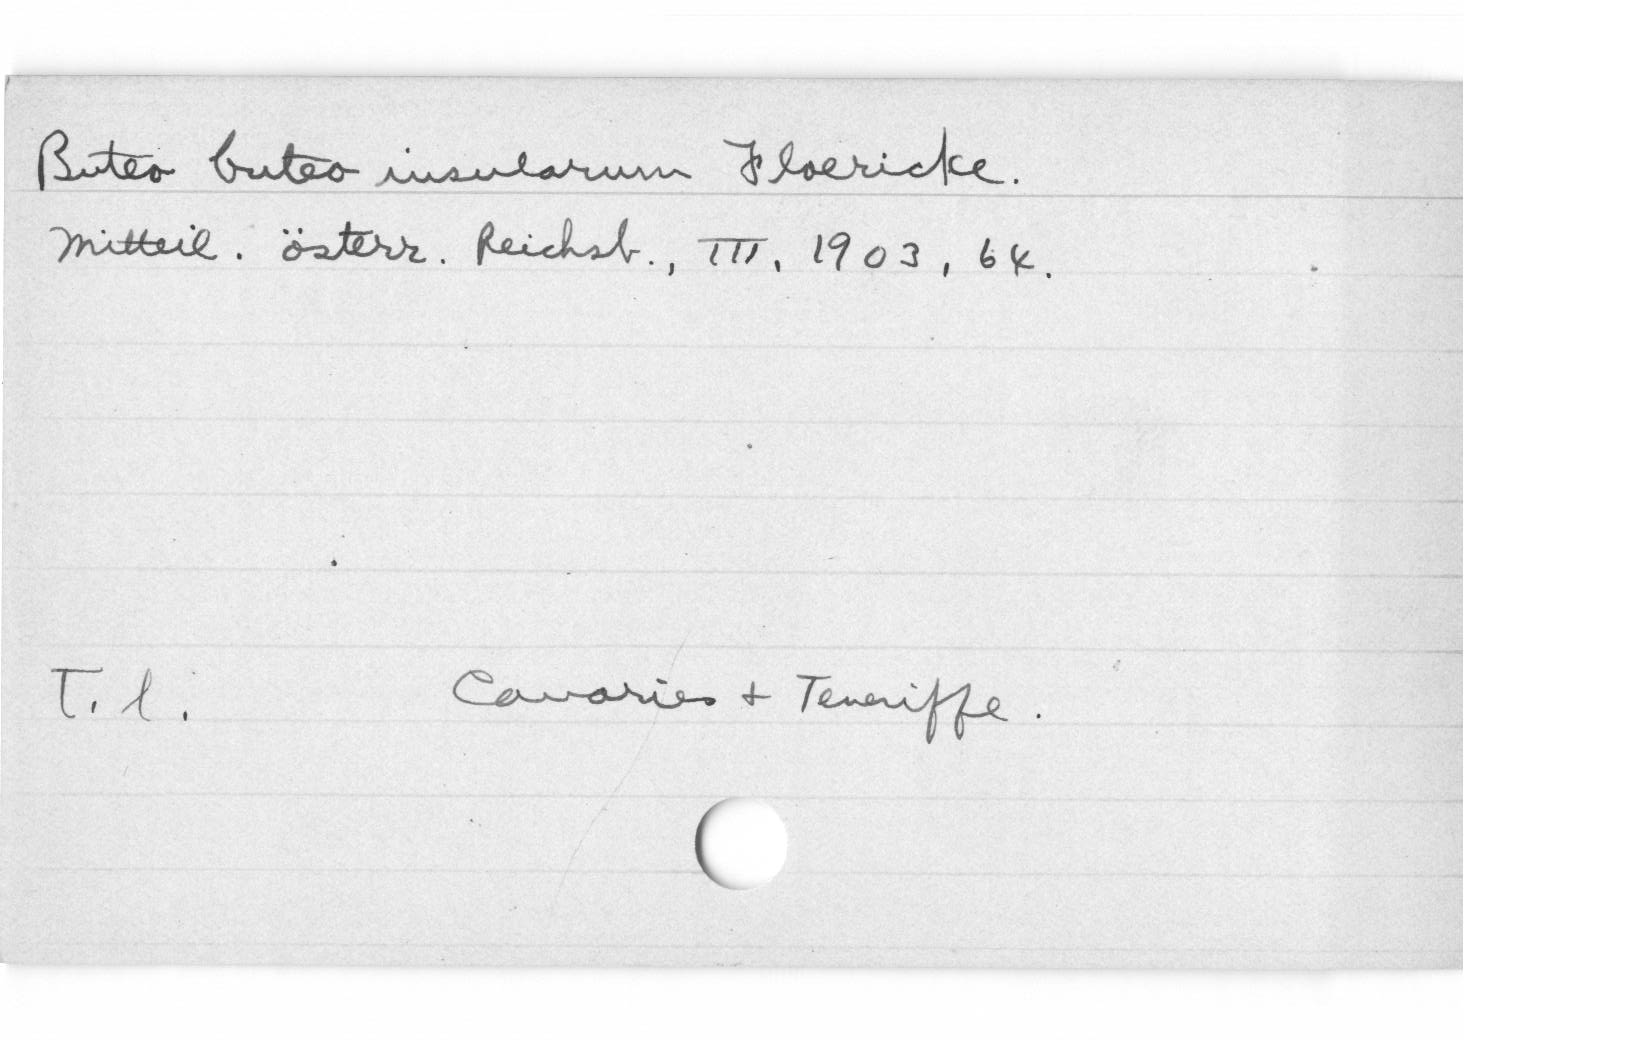 Buteo buteo insularum Floericke.
Mitteil. österr. Reichsb., III, 1903, 64.
T. l. Canaries + Teneriffe.